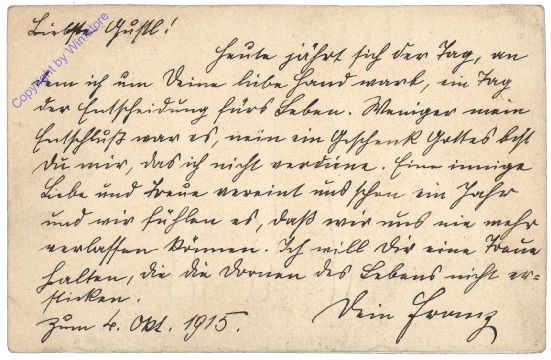 Liebste Gustl!
Heute jährt sich der Tag, an
dem ich um Deine liebe Hand warb, ein Tag
der Entscheidung fürs Leben. Weniger mein
Entschluß war es, nein ein Geschenk Gottes bist
Du mir, das ich nicht verdiene. Eine innige
Liebe und Treue vereint uns schon ein Jahr
und wir fühlen es, daß wir uns nie mehr
verlassen können. Ich will Dir eine Treue
halten, die die Dornen des Lebens nicht er=
sticken.
Dein Franz
Zum 4. Okt. 1915.
Copyright by Winstore